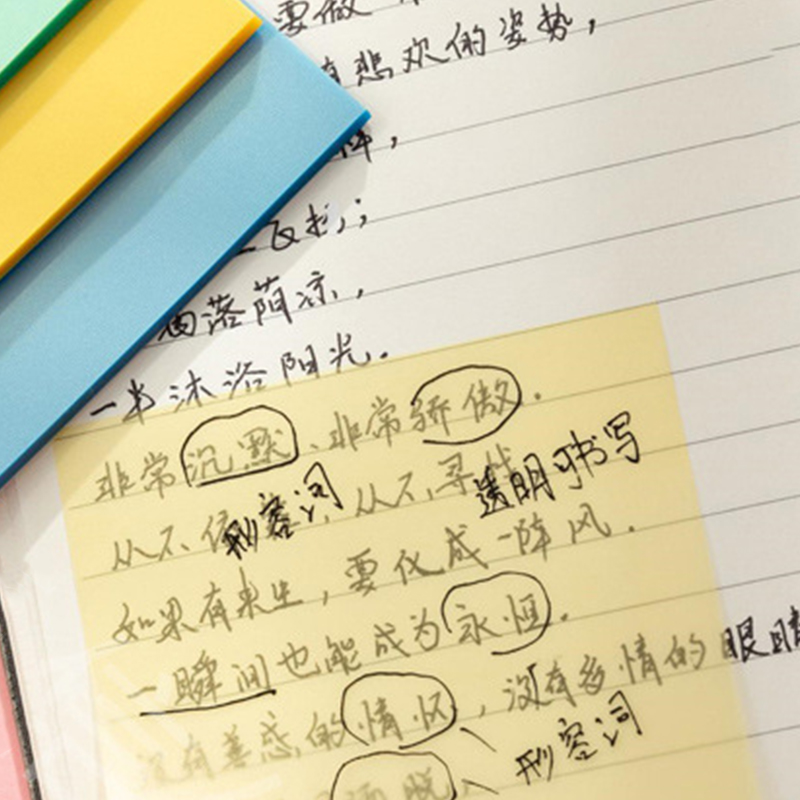 要做
悲欢的姿势，
飞扬；
洒落荫凉，
一半沐浴阳光。
非常沉默、非常骄傲。
形容词
透明可书写
从不依 从不寻找
如果有来生，要化成一阵风。
一瞬间也能成为永恒。
没有善感的情怀，没有多情的眼睛
形容词